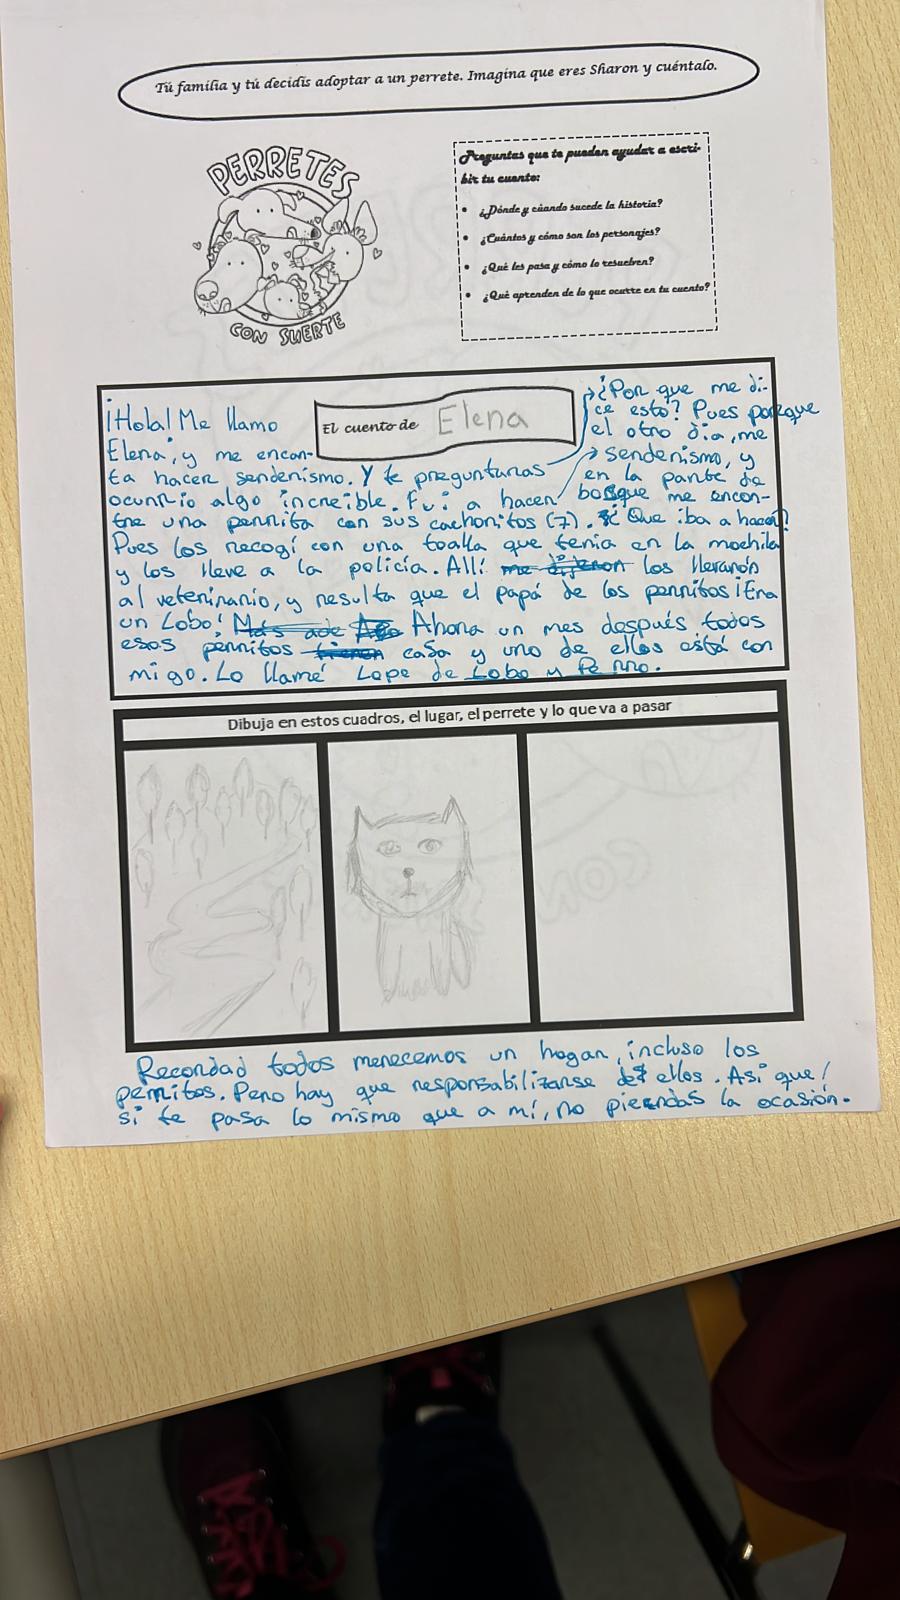 Tú familia y tú decidís adoptar a un perrete. Imagina que eres Sharon y cuéntalo.
PERRETES
CON SUERTE
Preguntas que te pueden ayudar a escri-
bir tu cuento:
• ¿Dónde y cúando sucede la historia?
• ¿Cuántos y cómo son los personajes?
• ¿Qué les pasa y cómo lo resuelven?
• ¿Qué aprenden de lo que ocurre en tu cuento?
El cuento de Elena
¡Hola! Me llamo
Elena, y me encan-
ta hacer senderismo. Y te preguntaras
¿Por que me di-
ce esto? Pues porque
el otro día, me
ocurrio algo increible. Fui a hacer
senderismo, y
en la parte de
bosque me encon-
tre una perrita con sus cachorritos (7). ¿Que iba a hacer?
Pues los recogí con una toalla que tenia en la mochila
y los lleve a la policía. Allí me dijeron los llevarón
al veterinario, y resulta que el papá de los perritos ¡Era
un Lobo! Más ade Ahora un mes después todos
esos perritos tienen casa y uno de ellos está con
migo. Lo llamé Lope de Lobo y Perro.
Dibuja en estos cuadros, el lugar, el perrete y lo que va a pasar
Recordad todos merecemos un hogar, incluso los
perritos. Pero hay que responsabilizarse de ellos. Así que!
si te pasa lo mismo que a mí, no pierdas la ocasión.